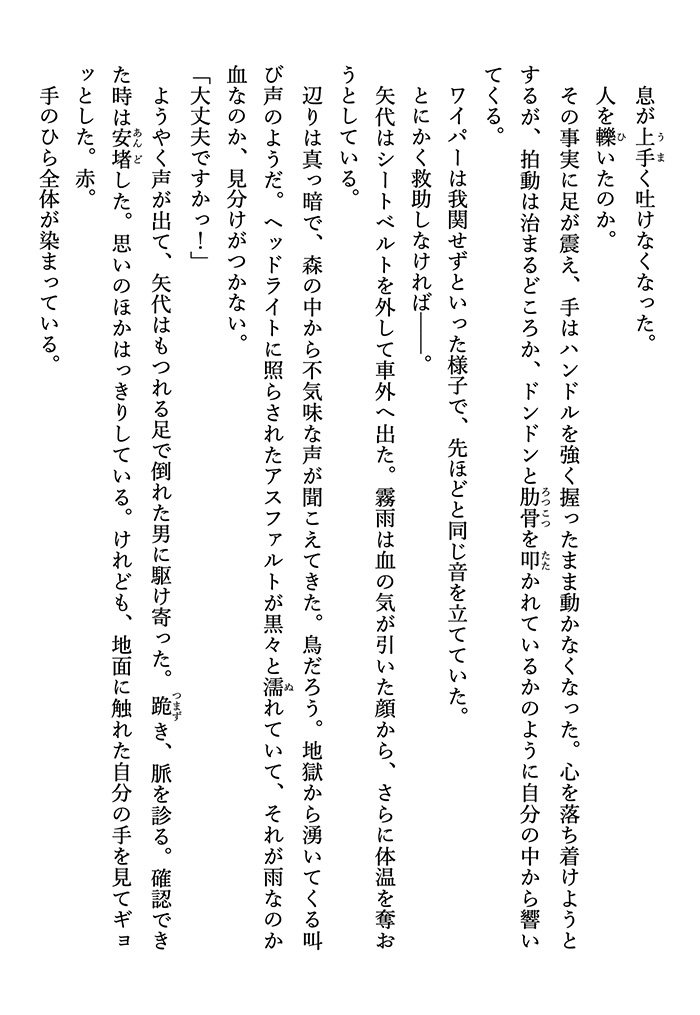 息が上手く吐けなくなった。
人を轢いたのか。
その事実に足が震え、手はハンドルを強く握ったまま動かなくなった。心を落ち着けようと
するが、拍動は治まるどころか、ドンドンと肋骨を叩かれているかのように自分の中から響い
てくる。
ワイパーは我関せずといった様子で、先ほどと同じ音を立てていた。
とにかく救助しなければ――。
矢代はシートベルトを外して車外へ出た。霧雨は血の気が引いた顔から、さらに体温を奪お
うとしている。
辺りは真っ暗で、森の中から不気味な声が聞こえてきた。鳥だろう。地獄から湧いてくる叫
び声のようだ。ヘッドライトに照らされたアスファルトが黒々と濡れていて、それが雨なのか
血なのか、見分けがつかない。
「大丈夫ですかっ！」
ようやく声が出て、矢代はもつれる足で倒れた男に駆け寄った。跪き、脈を診る。確認でき
た時は安堵した。思いのほかはっきりしている。けれども、地面に触れた自分の手を見てギョ
ッとした。赤。
手のひら全体が染まっている。